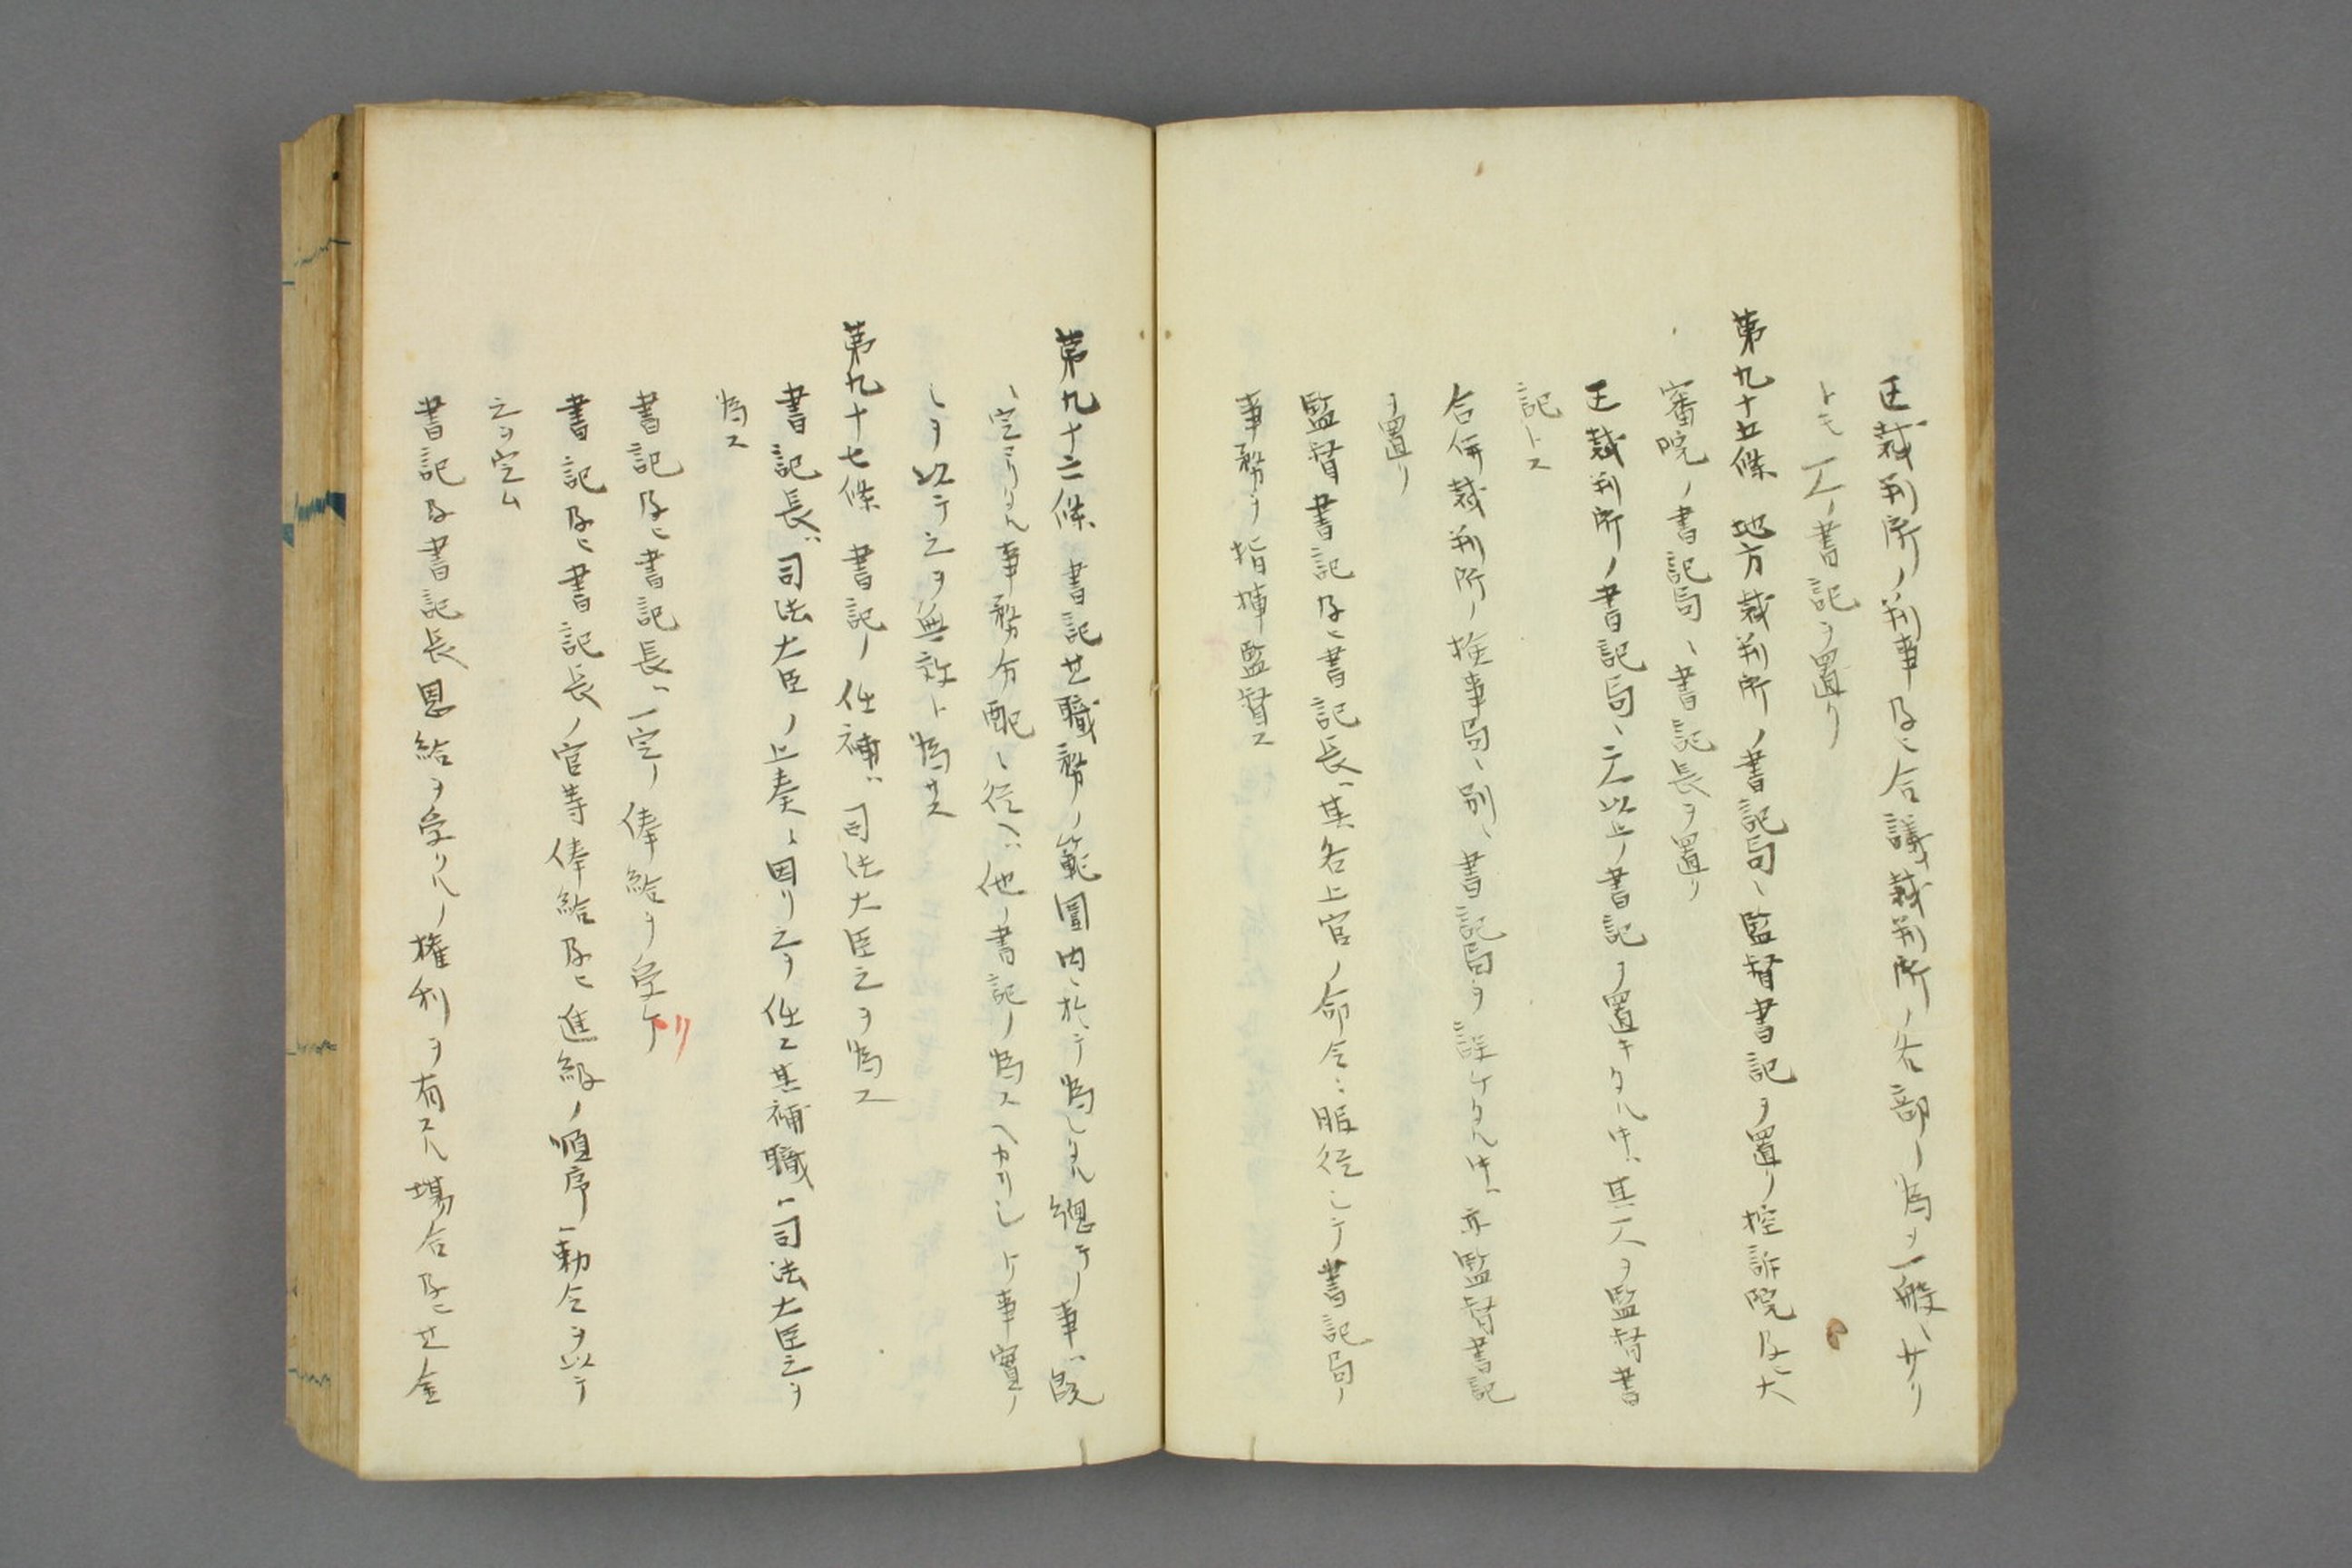 区裁判所ノ判事及ヒ合議裁判所ノ各部ノ為メ一般ニ少ク
トモ一人ノ書記ヲ置ク
第九十五條 地方裁判所ノ書記局ニ監督書記ヲ置ク控訴院及ヒ大
審院ノ書記局ニ書記長ヲ置ク
区裁判所ノ書記局ニ二人以上ノ書記ヲ置キタルキハ其一人ヲ監督書
記トス
合併裁判所ノ検事局ニ別ニ書記局ヲ設ケタルキハ亦監督書記
ヲ置ク
監督書記及ヒ書記長ハ其各上官ノ命令ニ服従シテ書記局ノ
事務ヲ指揮監督ス
第九十六條 書記其職務ノ範圍内ニ於テ為シタル總テノ事ハ既
ニ定マリタル事務分配ニ従ヘハ他ノ書記ノ為スヘカリシトノ事實ノ
ミヲ以テ之ヲ無效ト為サス
第九十七條 書記ノ任補ハ司法大臣之ヲ為ス
書記長ハ司法大臣ノ上奏ニ因リ之ヲ任シ其補職ハ司法大臣之ヲ
為ス
書記及ヒ書記長ハ一定ノ俸給ヲ受ク
書記及ヒ書記長ノ官等俸給及ヒ進級ノ順序ハ勅令ヲ以テ
之ヲ定ム
書記及書記長恩給ヲ受クルノ権利ヲ有スル場合及ヒ其金